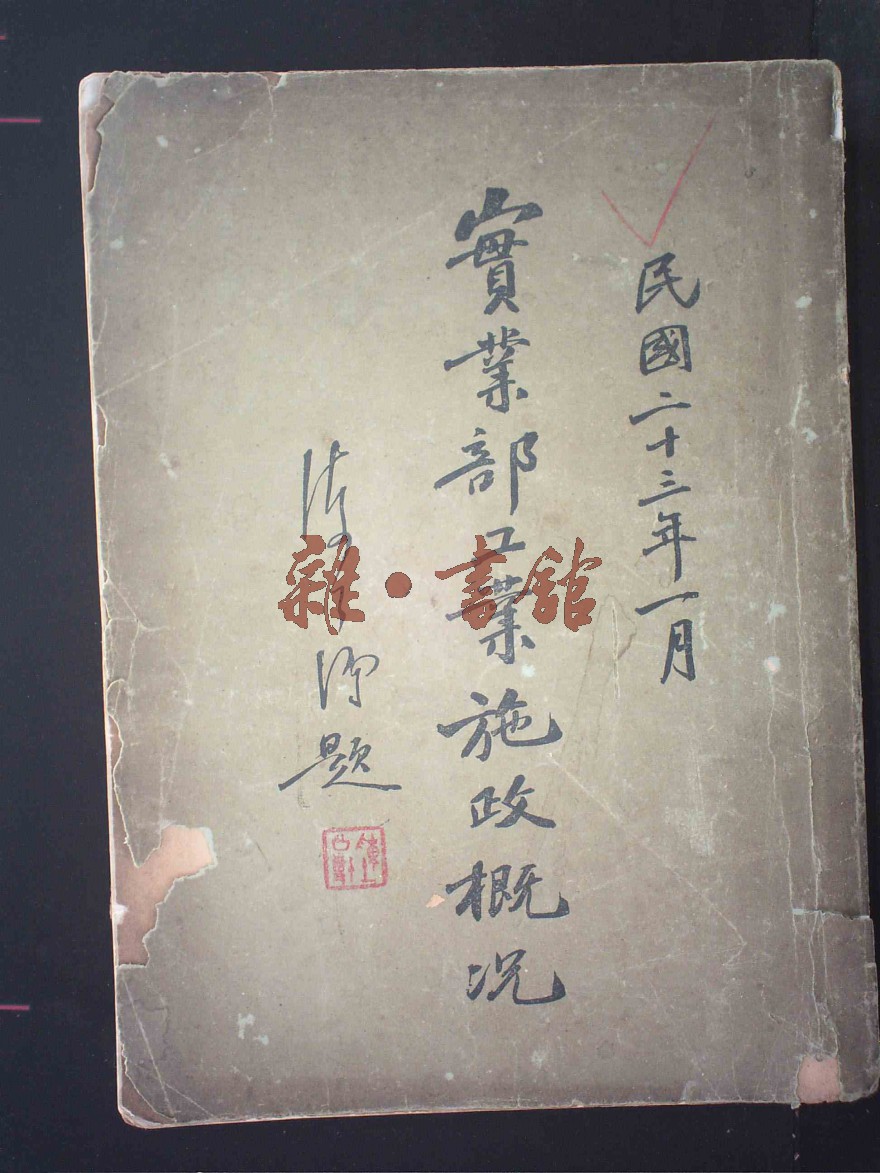 民國二十三年一月
實業部工業施政概况
陳公博題
雜·書舘